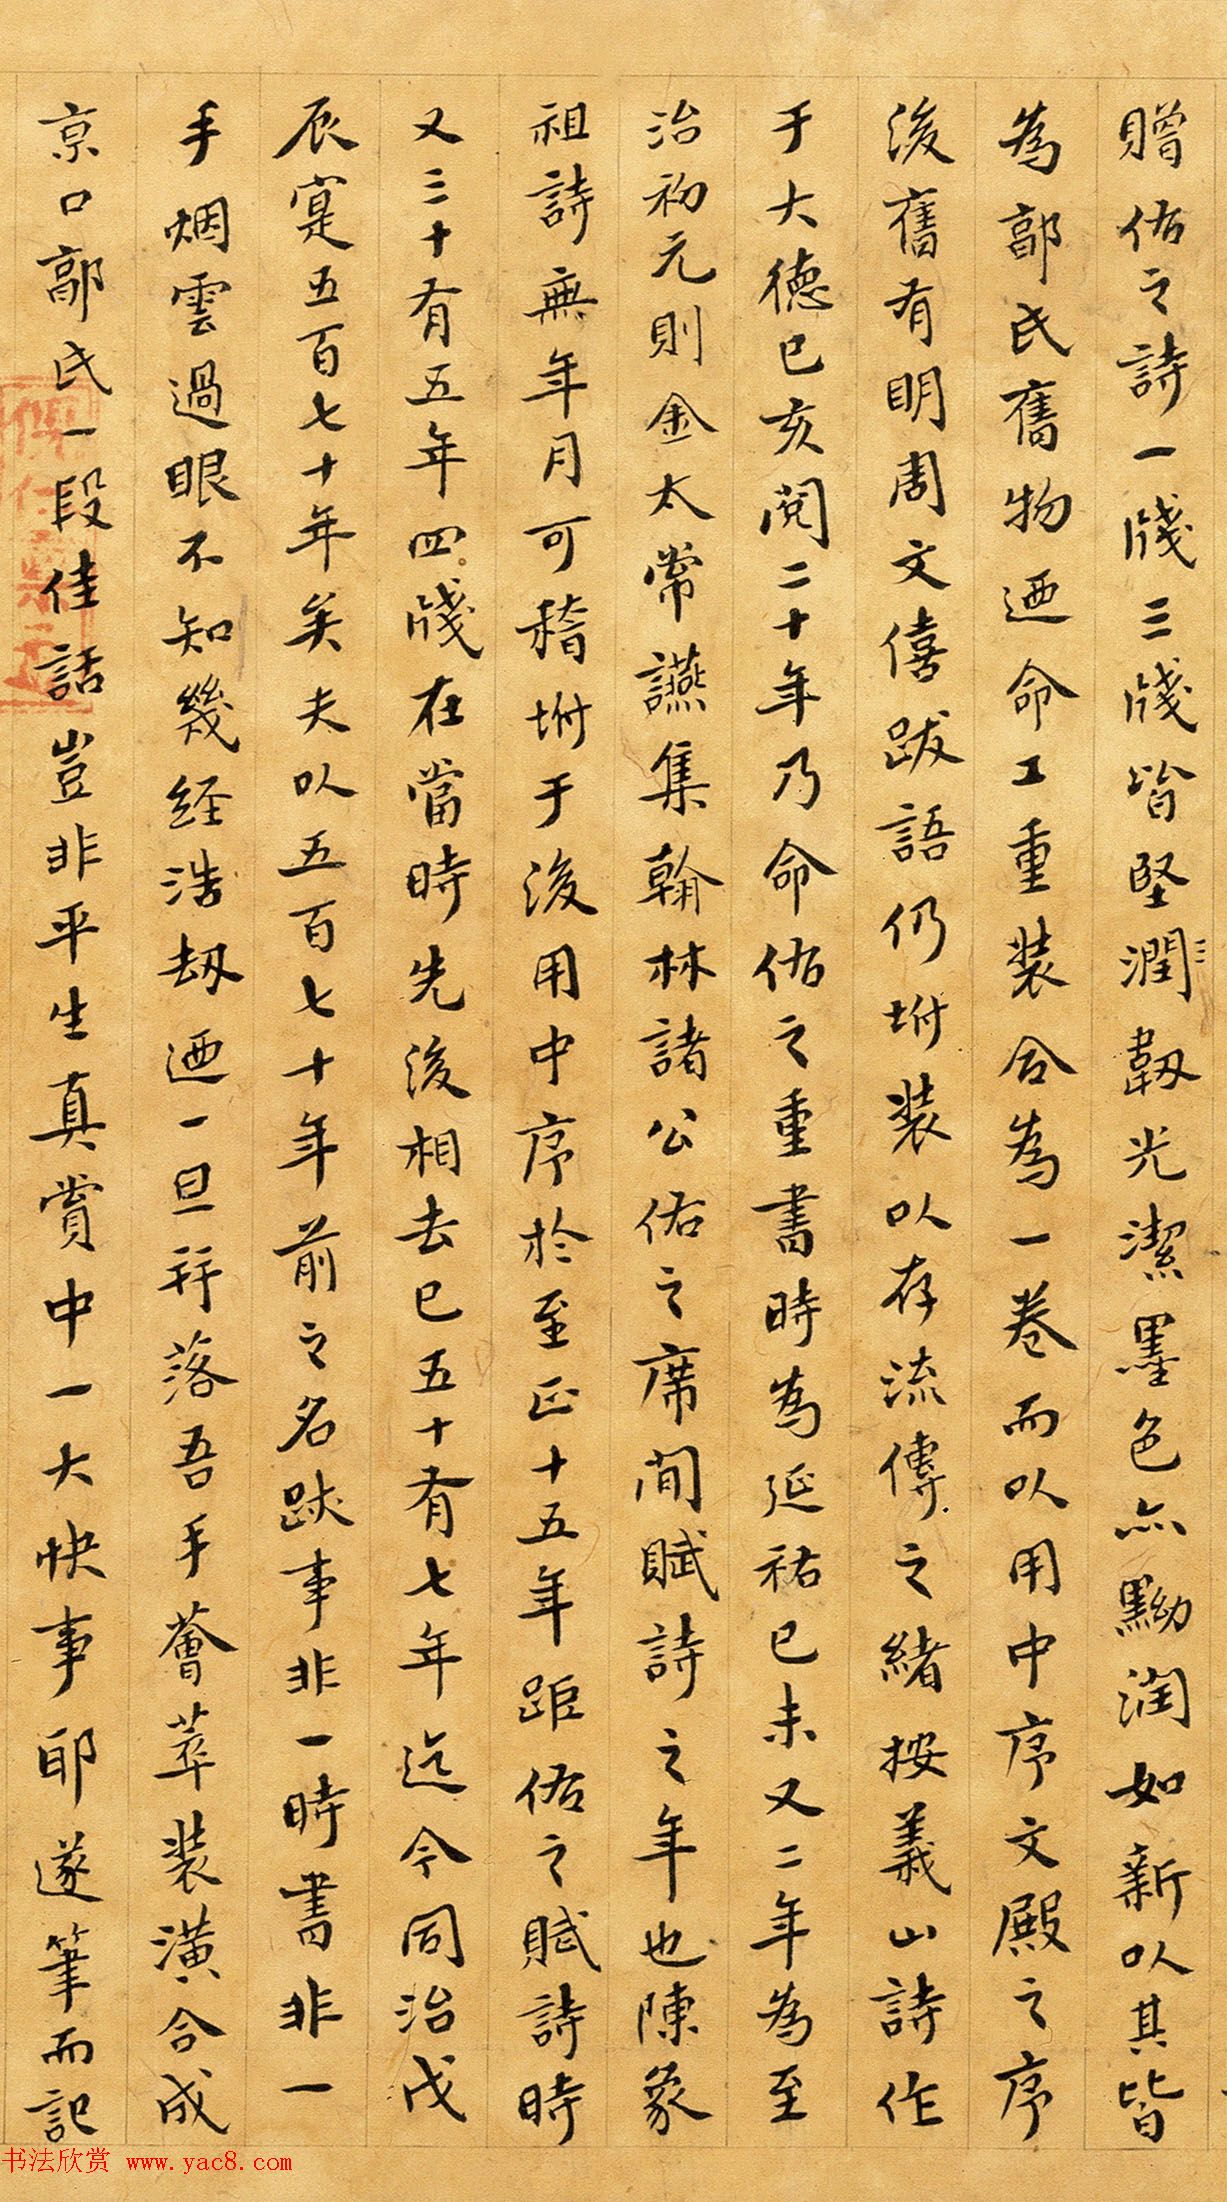 贈佑之詩一牋三牋皆堅潤韌光潔墨色亦黝潤如新以其皆
為郭氏舊物迺命工重裝合為一卷而以用中序文殿之序
後舊有明周文僖跋語仍坿裝以存流傳之緒按義山詩作
于大德己亥閱二十年乃命佑之重書時為延祐己未又二年為至
治初元則金太常讌集翰林諸公佑之席間賦詩之年也陳彖
祖詩無年月可稽坿于後用中序於至正十五年距佑之賦詩時
又三十有五年四牋在當時先後相去已五十有七年迄今同治戊
辰寔五百七十年矣夫以五百七十年前之名跡事非一時書非一
手烟雲過眼不知幾經浩劫迺一旦并落吾手薈萃裝潢合成
京口郭氏一段佳話豈非平生真賞中一大快事耶遂筆而記
书法欣赏 www.yac8.com